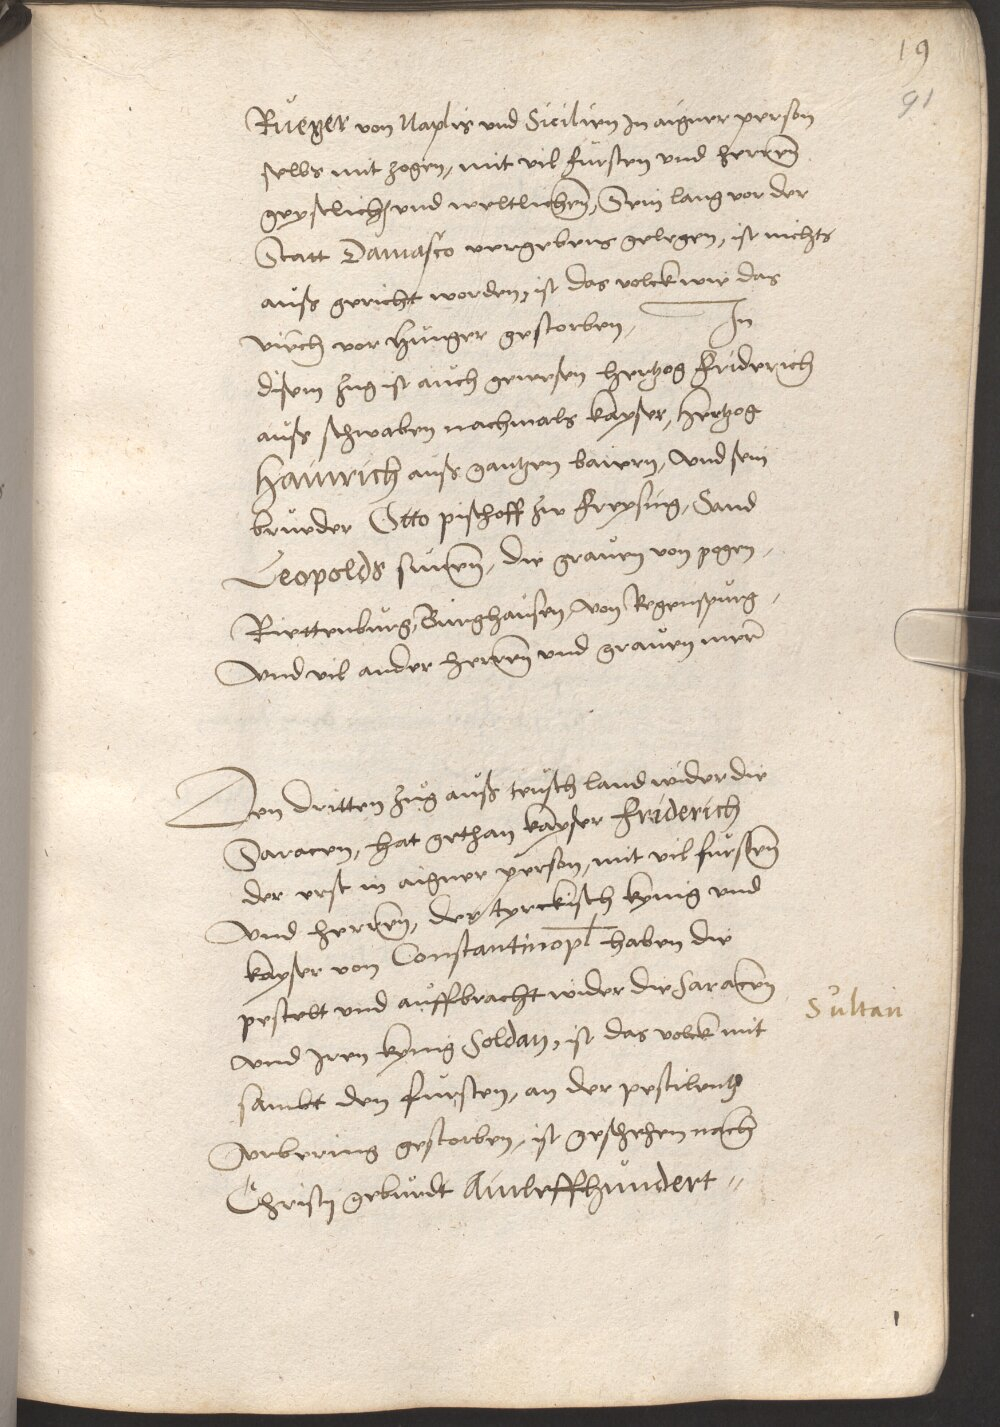 19
91
Rueger von Naplis und Sicilien In aigner person
selbs mit zogen, mit vil fürsten und herren
geystlich und weltlichen, Sein lang vor der
Statt Damasco vergebens gelegen, ist nichts
auß gericht worden, ist das volck wie das
viech vor hunger gestorben, In
disem zug ist auch gewesen hertzog Friderich
auß schwaben nachmals kayser, hertzog
Hainrich auß gantzen bairen, und sein
brueder Otto pischoff zu Freysing, Sand
Leopolds sunen, die graven von pogen,
Riettenburg, Burghausen, von Regenspurg,
Und vil ander herren und graven mer
Den dritten zug auß teutsch land wider die
Saracen, hat gethan kayser Friderich
der erst in aigner person, mit vil fürsten
Und herren, der tyrckisch kynig und
kayser von Constantinopl haben die
pestelt und auffbracht wider die Saracen
Und Iren kynig Soldan, ist das volck mit
sambt den fursten, an der pestilentz
Urbering gestorben, ist geschehen nach
Christi geburdt Ainleffhundert
Sultan
1